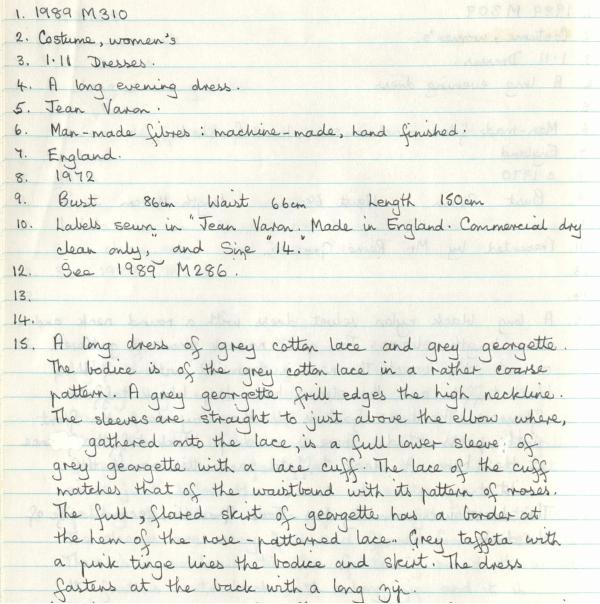 1. 1989 M310
2. Costume, women's
3. 1.11 Dresses.
4. A long evening dress.
5. Jean Varon.
6. Man-made fibres : machine-made, hand finished.
7. England.
8. 1972
9. Bust 86cm Waist 66cm Length 150cm
10. Labels sewn in "Jean Varon. Made in England. Commercial dry
clean only," and Size "14."
12. See 1989 M286.
13.
14.
15. A long dress of grey cotton lace and grey georgette.
The bodice is of the grey cotton lace in a rather coarse
pattern. A grey georgette frill edges the high neckline.
The sleeves are straight to just above the elbow where,
gathered onto the lace, is a full lower sleeve of
grey georgette with a lace cuff. The lace of the cuff
matches that of the waistband with its pattern of roses.
The full, flared skirt of georgette has a border at
the hem of the rose-patterned lace. Grey taffeta with
a pink tinge lines the bodice and skirt. The dress
fastens at the back with a long zip.